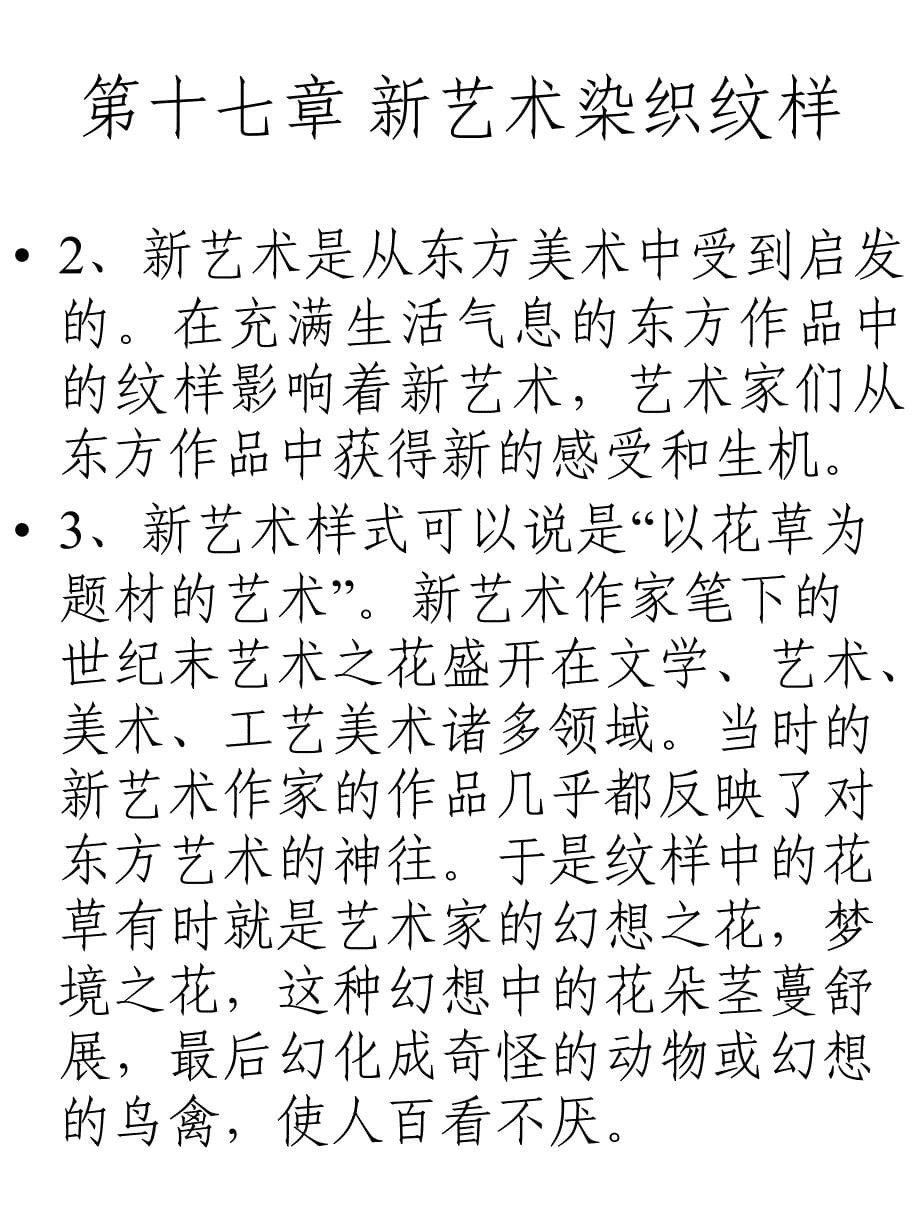 第十七章 新艺术染织纹样
• 2、新艺术是从东方美术中受到启发
的。在充满生活气息的东方作品中
的纹样影响着新艺术，艺术家们从
东方作品中获得新的感受和生机。
• 3、新艺术样式可以说是“以花草为
题材的艺术”。新艺术作家笔下的
世纪末艺术之花盛开在文学、艺术、
美术、工艺美术诸多领域。当时的
新艺术作家的作品几乎都反映了对
东方艺术的神往。于是纹样中的花
草有时就是艺术家的幻想之花，梦
境之花，这种幻想中的花朵茎蔓舒
展，最后幻化成奇怪的动物或幻想
的鸟禽，使人百看不厌。